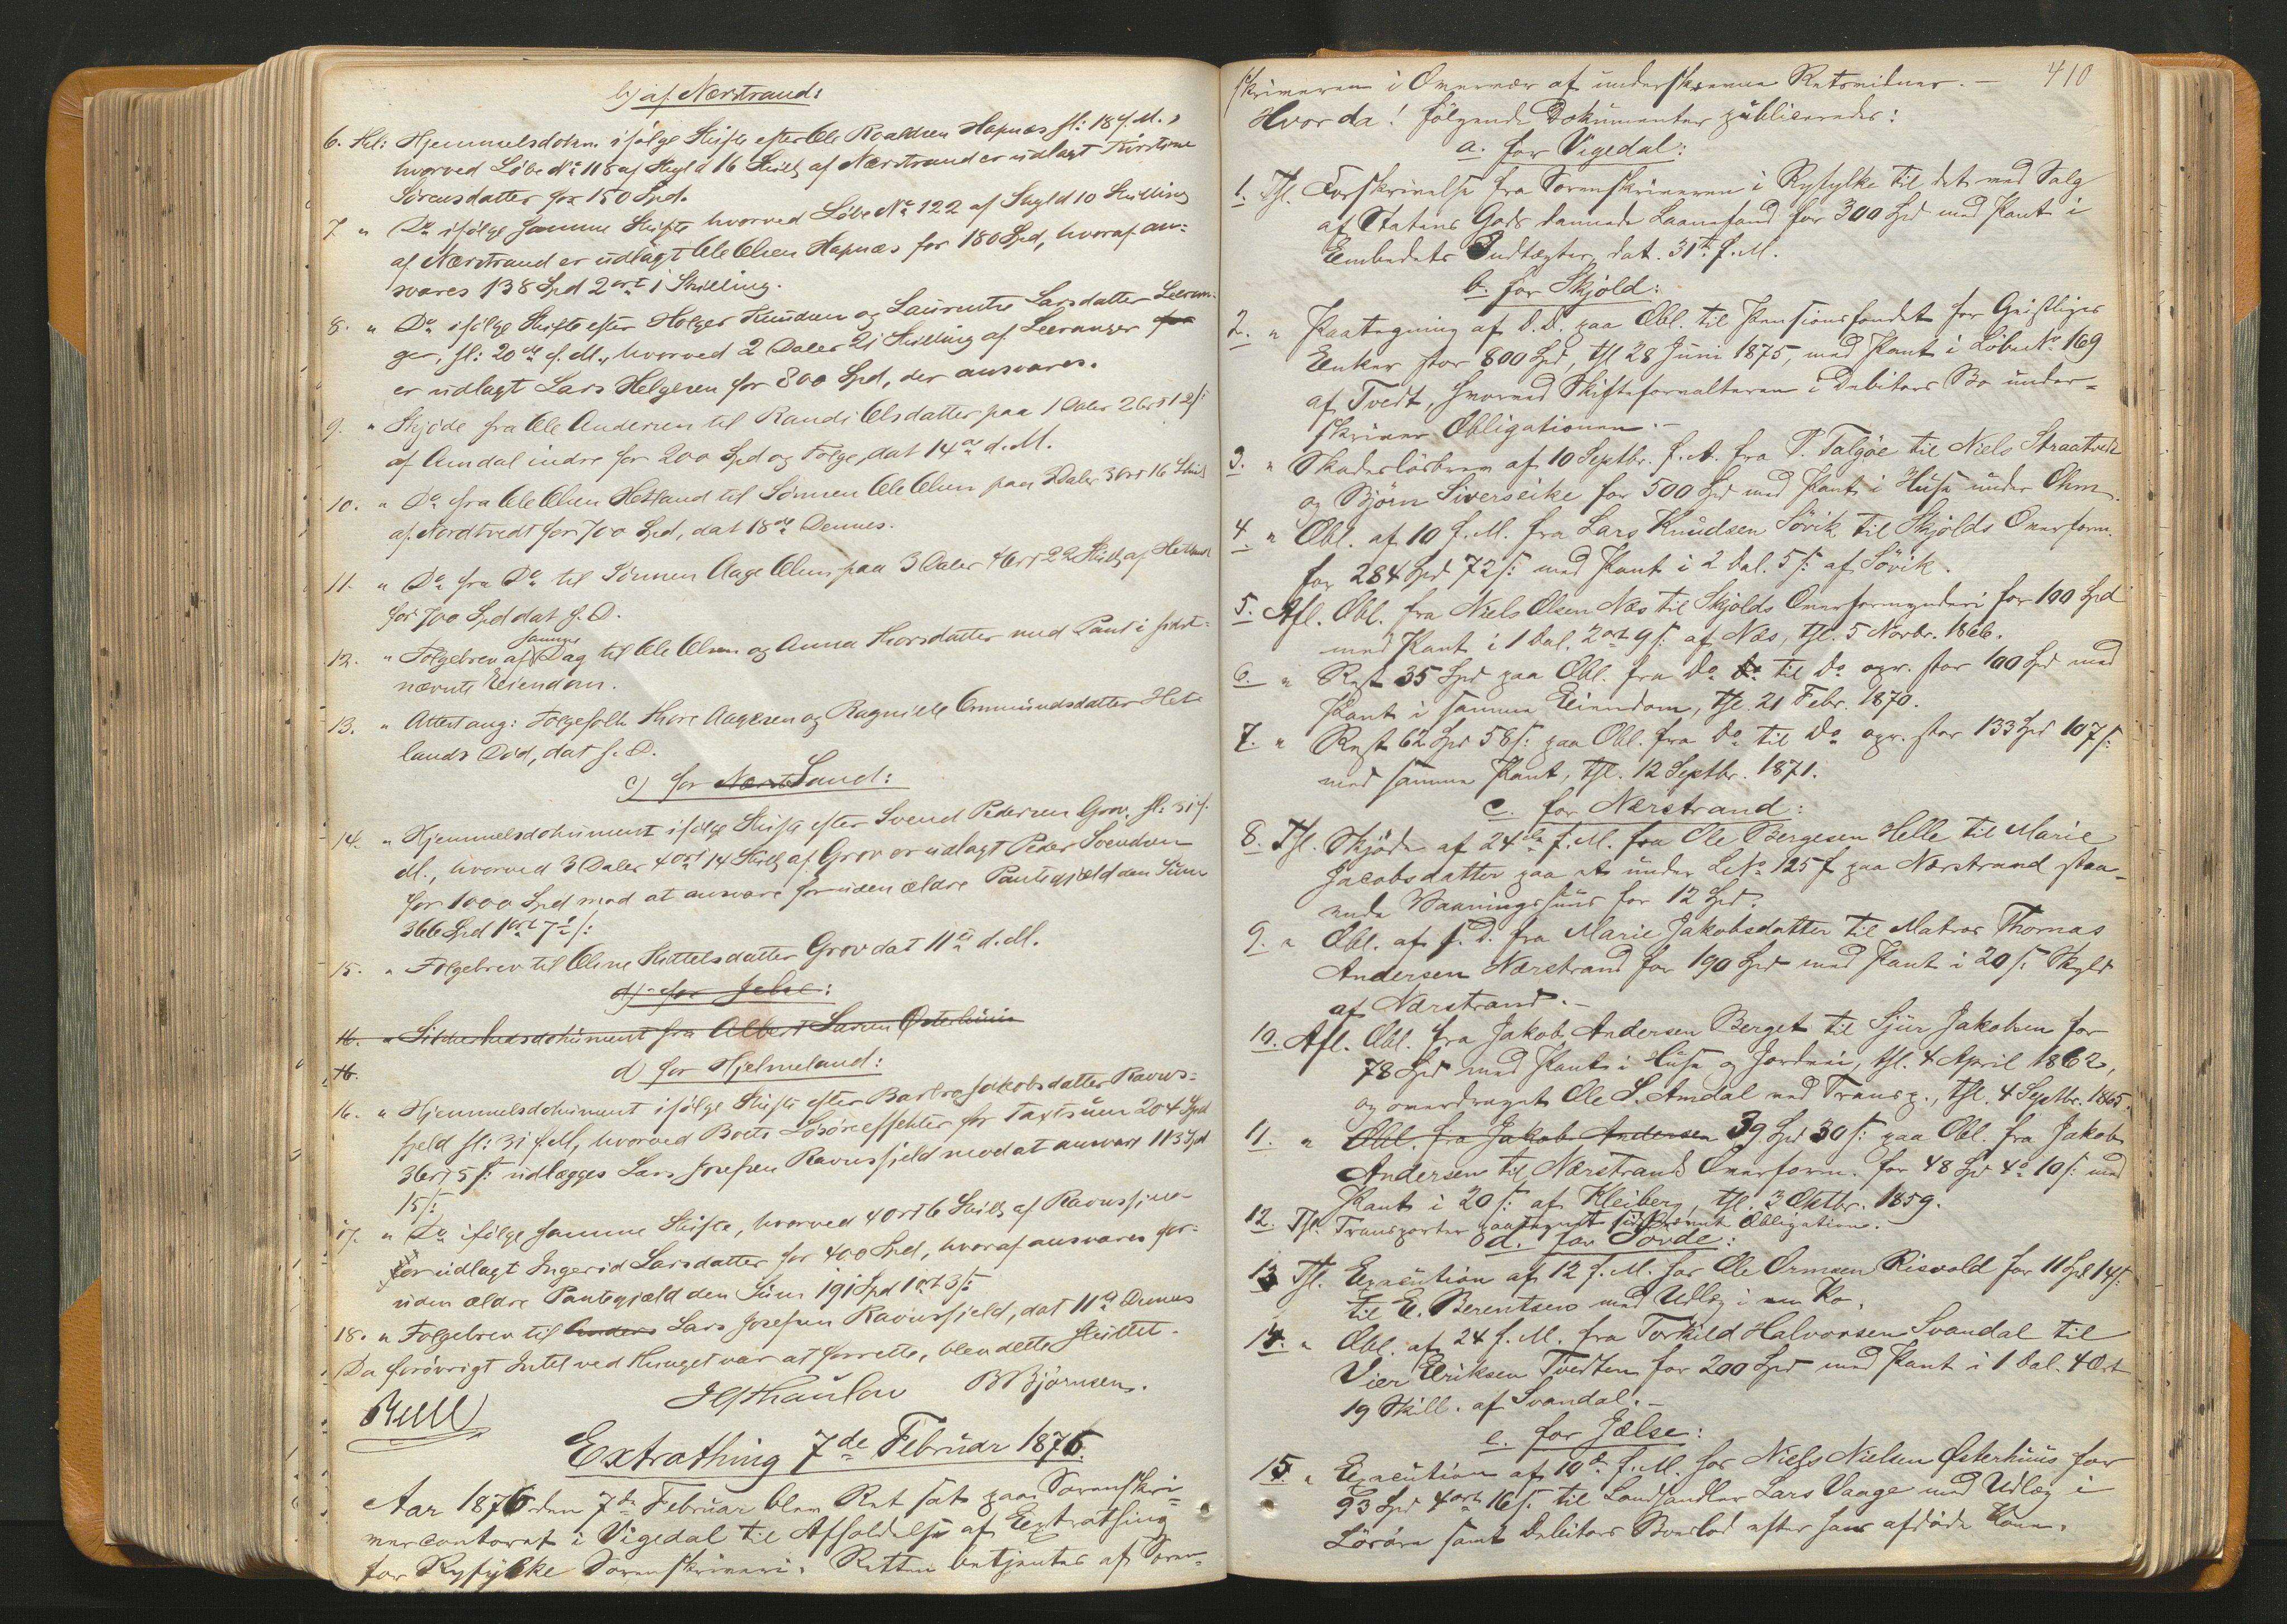 b) af Nærstrand:
6. Thl: Hjemmelsdokm. ifølge Skifte efter Ole Roaldsen Hapnæs sl: 18 f. M.,
hvorved Løbe No 118 af Skyld 16 Skill af Nærstrand er udlagt Kirstine
Sørensdatter for 150 Spd.
7. " Do ifølge samme Skifte hvorved Løbe No 122 af Skyld 10 Skilling
af Nærstrand er udlagt Ole Olsen Hapnæs for 180 Spd, hvoraf an-
svares 138 Spd 2 ort 1 Skilling.
8. " Do ifølge Skifte efter Holger Knudsen og Laurentse Larsdatter Leeran-
ger, sl: 20de f. M., hvorved 2 Daler 21 Skilling af Leeranger for
er udlagt Lars Helgesen for 800 Spd, der ansvares.
9. " Skjøde fra Ole Andersen til Randi Olsdatter paa 1 Daler 2 Ort 12 s:
af Amdal indre for 200 Spd og Følge, dat 14de d. M.
10. " Do fra Ole Olsen Hetland til Sønnen Ole Olsen paa 3 Daler 3 Ort 16 Skill
af Nordtvedt for 700 Spd, dat 18de Dennes.
11. " Do fra Do til Sønnen Aage Olsen paa 3 Daler 4 Ort 22 Skill af Hetland
for 700 Spd dat s. D.
12. " Følgebrev af samme Dag til Ole Olsen og Anna Thorsdatter med Pant i sidst-
nævnte Eiendom.
13. " Attest ang: Følgefolk Thore Aagesen og Ragnilde Ommundsdatter Het-
lands Død, dat s. D.
c) for Nærst Sand:
14. " Hjemmelsdokument ifølge Skifte efter Svend Pedersen Grov, sl: 31 f.
M., hvorved 3 Daler 4 ort 14 Skill af Grov er udlagt Peder Svendsen
for 1000 Spd mod at ansvare foruden ældre Pantegjæld den Sum
366 Spd 1 ort 7 s:
15. " Følgebrev til Oline Kittelsdatter Grov dat 11te d. M.
d) for Jelse:
16. " Sikkerhedsdokument fra Albert Larsen Østerhuus
16.
d) for Hjelmeland:
16. " Hjemmelsdokument ifølge Skifte efter Barbro Jakobsdatter Ravns-
fjeld sl: 31 f. M, hvorved Boets Løsøreeffekter for Taxtsum 204 Spd
3 Ort 5 s: udlægges Lars Josefsen Ravnsfjeld mod at ansvare 113 Spd
15 s:
17. " Do ifølge samme Skifte, hvorved 4 Ort 6 Skill af Ravnsfjeld
er udlagt Ingerid Larsdatter for 400 Spd, hvoraf ansvares for-
uden ældre Pantegjæld den Sum 191 Spd 1 ort 3 s:
18. " Følgebrev til Anders Lars Josefsen Ravnsfjeld, dat 11te Dennes
Da forøvrigt Intet ved Thinget var at forrette, blev dette sluttet.
Bull B Bjørnsen.
Extrathing 7de Februar 1876.
Aar 1876 den 7de Februar blev Ret sat paa Sorenskri-
vercontoret i Vigedal til Afholdelse af Extrathing
for Ryfylke Sorenskriveri. Retten betjentes af Soren-
410
skriveren i Overvær af underskrevne Retsvidner. –
Hvorda! følgende Dokumenter publiceredes:
a. for Vigedal:
1. Thl. Forskrivelse fra Sorenskriveren i Ryfylke til det ved Salg
af Statens Gods dannede Laanefond for 300 Spd med Pant i
Embedets Indtægter, dat. 31te f. M.
b. for Skjold:
2. " Paategning af d. D. paa Obl. til Pensionsfondet for Geistliges
Enker stor 800 Spd, thl 28 Juni 1875, med Pant i Løbe No 169
af Tvedt, hvorved Skifteforvalteren i Debitors Bo under-
skriver Obligationen. –
3. " Skadesløsbrev af 10 Septbr. f. A. fra P. Talgøe til Niels Straatveit
og Bjørn Siverseike for 500 Spd med Pant i Huse under Ohm.
4. " Obl. af 10 f. M. fra Lars Knudsen Søvik til Skjolds Overform.
for 284 Spd 72 s: med Pant i 2 Dal. 5 s: af Søvik.
5. Afl. Obl. fra Niels Olsen Næs til Skjolds Overformynderi for 100 Spd
med Pant i 1 Dal. 2 ort 9 s. af Næs, thl. 5 Novbr. 1866.
6. " Rest 35 Spd paa Obl. fra Do Do til Do opr. stor 100 Spd med
Pant i samme Eiendom, thl. 21 Febr. 1870.
7. " Rest 62 Spd 58 s: paa Obl. fra Do til Do opr. stor 133 Spd 107 s:
med samme Pant, thl. 12 Septbr. 1871.
c. for Nærstrand:
8. Thl. Skjøde af 24de f. M. fra Ole Bergesen Helle til Marie
Jacobsdatter paa et under L No 125 f paa Nærstrand staa-
ende Vaaningshuus for 12 Spd.
9. " Obl. af s. D. fra Marie Jakobsdatter til Matros Thomas
Andersen Nærstrand for 190 Spd med Pant i 20 s. Skyld
af Nærstrand. –
10. Afl. Obl. fra Jakob Andersen Berget til Sjur Jakobsen for
78 Spd med Pant i Huse og Jordvei, thl. 4 April 1862,
og overdraget Ole S. Amdal ved Transp., thl. 4 Septbr. 1865.
11. " Obl. fra Jakob Andersen 39 Spd 30 s: paa Obl. fra Jakob
Andersen til Nærstrands Overform. for 48 Spd 4 o 10 s: med
Pant i 20 s: af Kleiberg, thl. 3 Oktbr. 1859.
12. Thl. Transporter paategnet sidstnævnte Obligation.
d. for Sovde:
13 Thl. Execution af 12 f. M. hos Ole Ormsen Risvold for 11 Spd 14 s:
til E. Berentsen med Udlæg i en Ko.
14. " Obl. af 24 f. M. fra Torkild Halvorsen Svandal til
Vier Eriksen Tvedten for 200 Spd med Pant i 1 Dal. 4 Ort
19 Skill. af Svandal. –
e. for Jelse:
15. " Execution af 10de f. M. hos Niels Nielsen Østerhuus for
93 Spd 4 ort 16 s. til Landhandler Lars Vaage med Udlæg i
Løsøre samt Debitors Boeslod efter hans afdøde Kone.